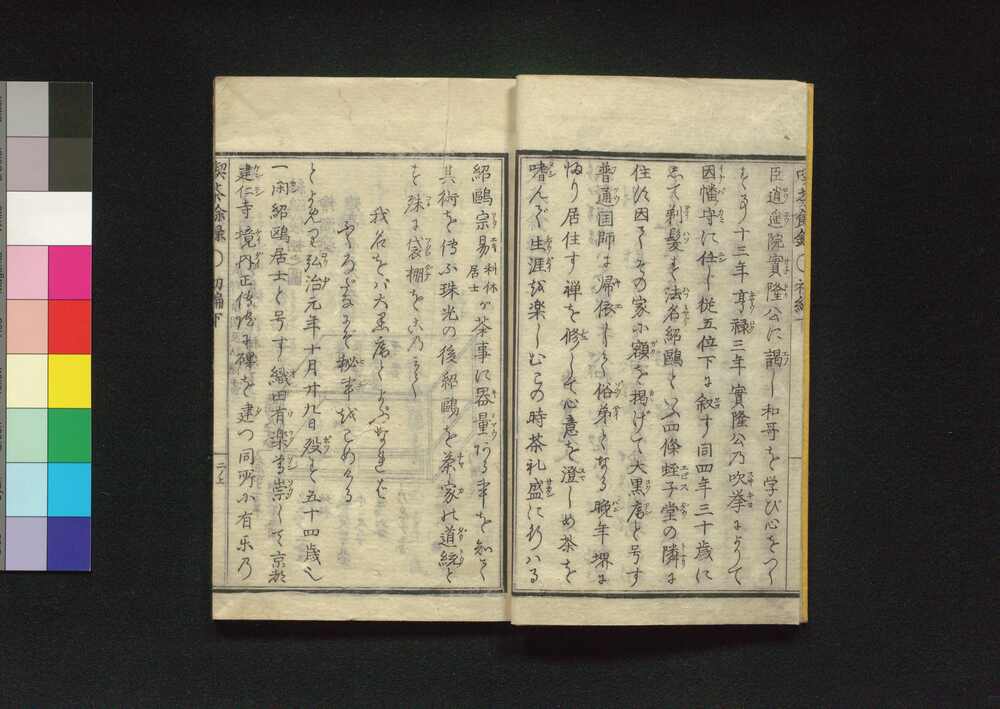 臣逍遥院實隆公に謁し和哥を学び心をつく
十三年享禄三年實隆公乃吹挙によりて
因幡守に任し従五位下に叙す同四年三十歳に
して剃髪し法名紹鴎といふ四條蛭子堂の隣に
住す因てその家に額を掲げて大黒庵と号す
普通国師に帰依し俗弟となる晩年堺に
帰り居住す禅を修して心意を澄しめ茶を
嗜んで生涯を楽しむこの時茶礼盛に行ハる
紹鴎宗易利休居士が茶事に器量ある事を知て
其術を傳ふ珠光の後紹鴎を茶家の道統と
す殊に袋棚を
我名をバ大黒庵とよぶなれば
ふくろだなにぞ秘事をこめける
とよめり弘治元年十月廿九日殁す五十四歳
一閑紹鴎居士と号す織田有楽崇して京都
建仁寺境内正傳院に碑を建つ同所に有乐乃
喫茶餘録 初編下